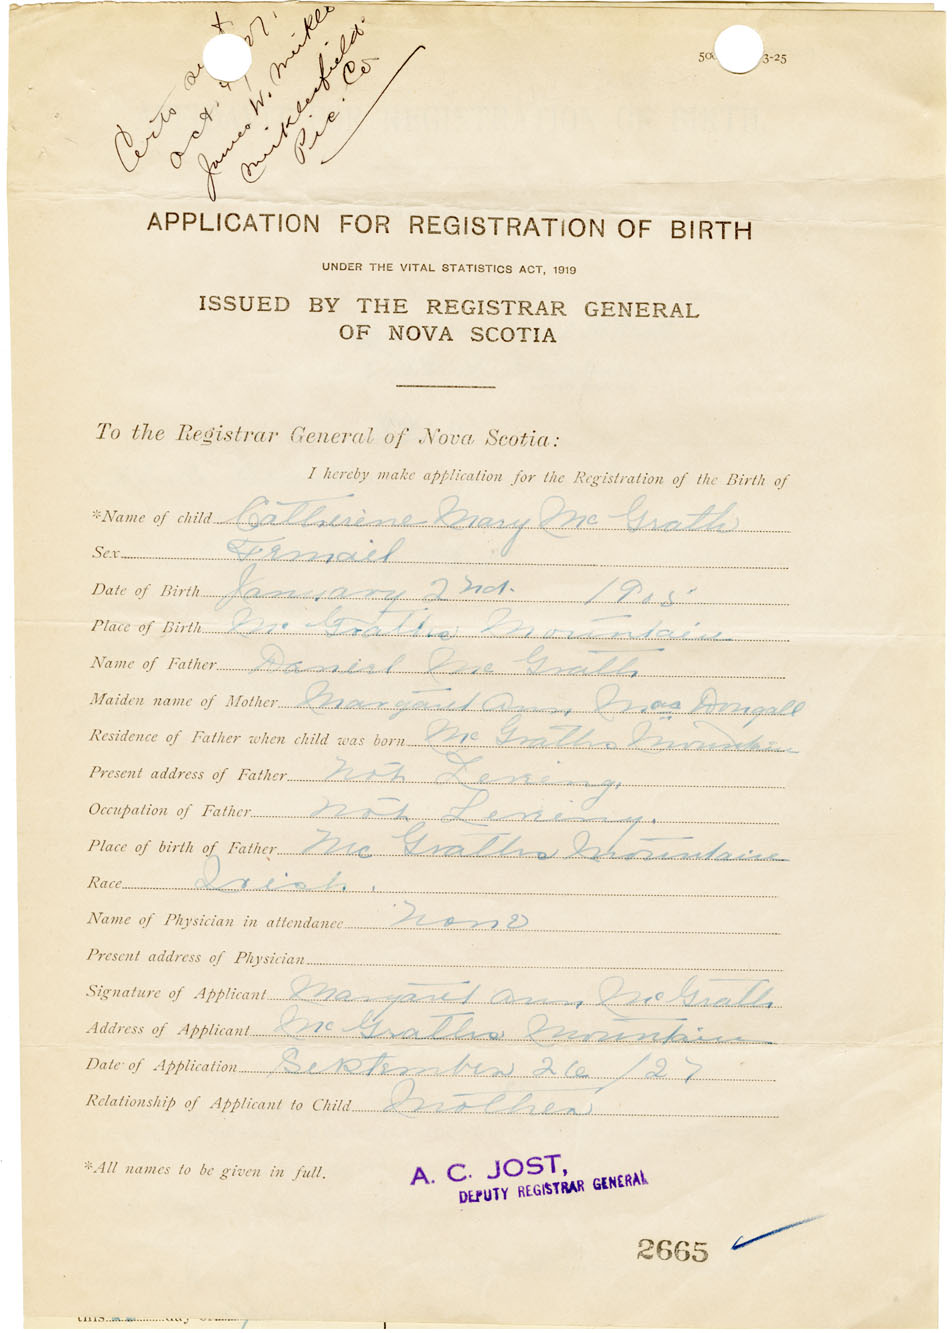 Certs
Oct. 4/27.
James W. Meikle
Meiklefield
Pic. Co
3-25
APPLICATION FOR REGISTRATION OF BIRTH
UNDER THE VITAL STATISTICS ACT, 1919
ISSUED BY THE REGISTRAR GENERAL
OF NOVA SCOTIA
To the Registrar General of Nova Scotia:
I hereby make application for the Registration of the Birth of
*Name of child Catherene Mary Mc Grath
Sex Femail
Date of Birth January 2nd. 1905
Place of Birth Mc Graths Mountain
Name of Father Daniel Mc Grath
Maiden name of Mother Margaret Ann, Mac Dongall
Residence of Father when child was born Mc Graths Mountain
Present address of Father Not Leveing,
Occupation of Father Not Leveing.
Place of birth of Father Mc Graths Mountain
Race Irish.
Name of Physician in attendance None
Present address of Physician
Signature of Applicant Margaret Ann, Mc Grath
Address of Applicant Mc Graths Mountain
Date of Application September 26 /27
Relationship of Applicant to Child Mother
*All names to be given in full.
A. C. JOST,
DEPUTY REGISTRAR GENERAL
2665
this day of